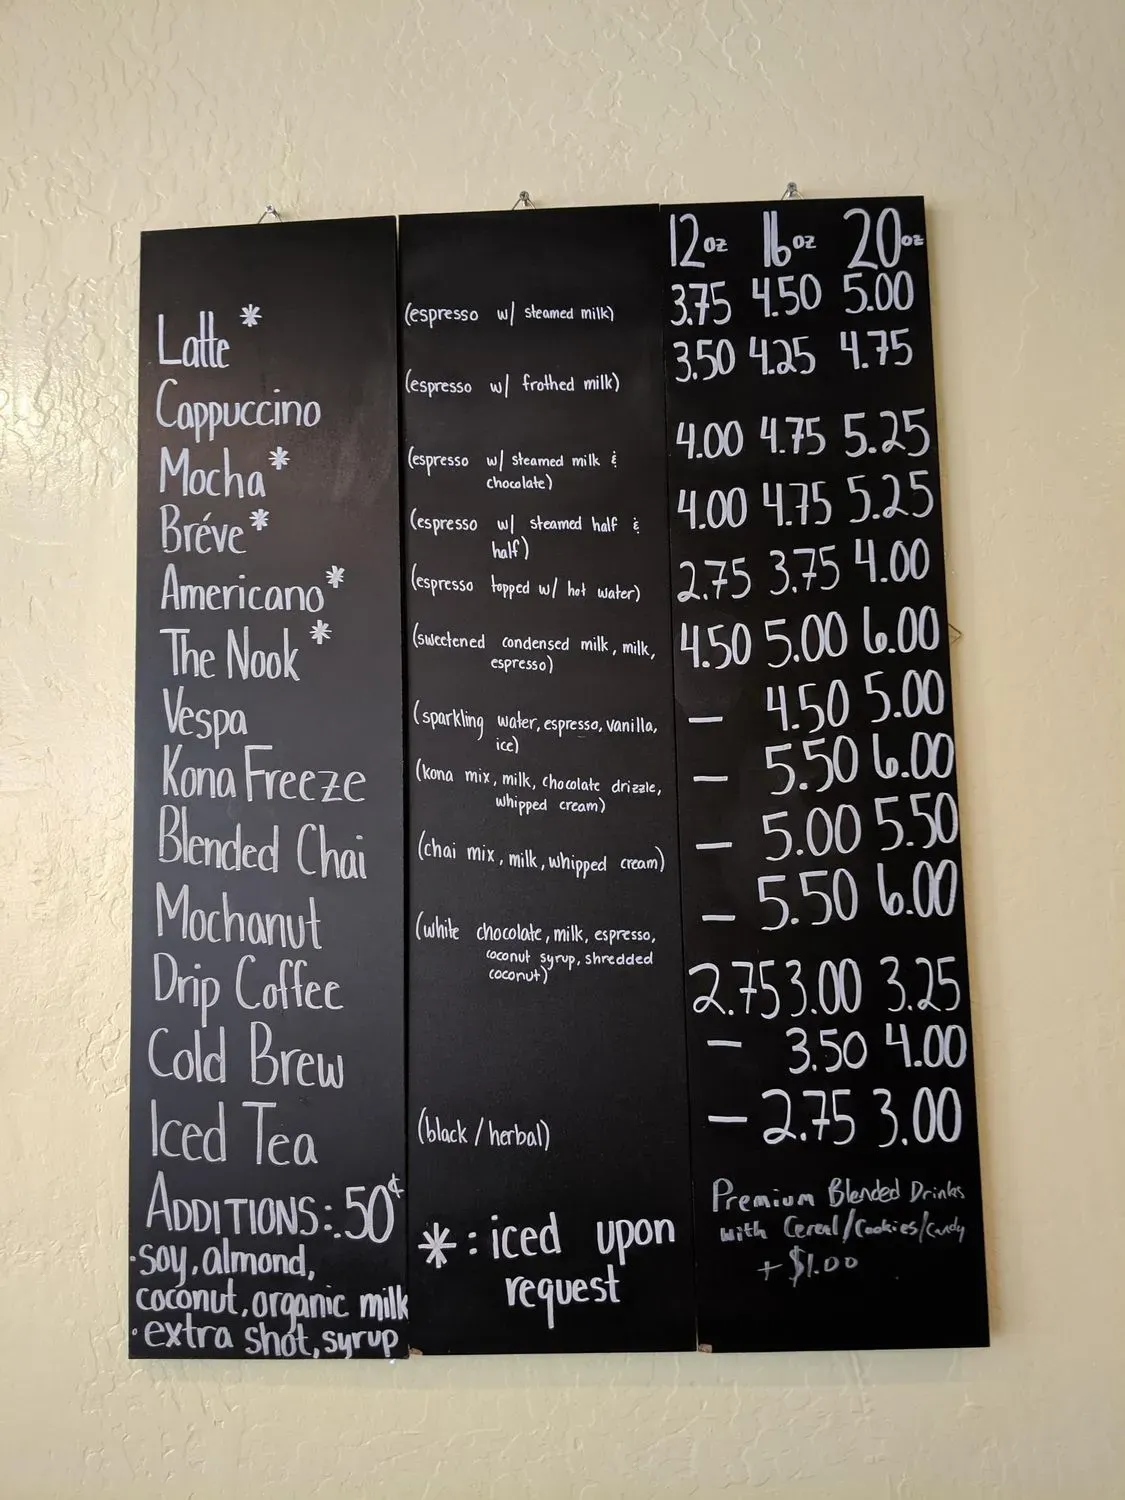 12oz 16oz 20oz
Latte* (espresso w/ steamed milk) 3.75 4.50 5.00
Cappuccino (espresso w/ frothed milk) 3.50 4.25 4.75
Mocha* (espresso w/ steamed milk & chocolate) 4.00 4.75 5.25
Bréve* (espresso w/ steamed half & half) 4.00 4.75 5.25
Americano* (espresso topped w/ hot water) 2.75 3.75 4.00
The Nook* (sweetened condensed milk, milk, espresso) 4.50 5.00 6.00
Vespa (sparkling water, espresso, vanilla, ice) — 4.50 5.00
Kona Freeze (kona mix, milk, chocolate drizzle, whipped cream) — 5.50 6.00
Blended Chai (chai mix, milk, whipped cream) — 5.00 5.50
Mochanut (white chocolate, milk, espresso, coconut syrup, shredded coconut) — 5.50 6.00
Drip Coffee 2.75 3.00 3.25
Cold Brew — 3.50 4.00
Iced Tea (black / herbal) — 2.75 3.00
ADDITIONS: .50¢
·soy, almond,
coconut, organic milk
·extra shot, syrup
* : iced upon
request
Premium Blended Drinks
with Cereal/Cookies/Candy
+ $1.00